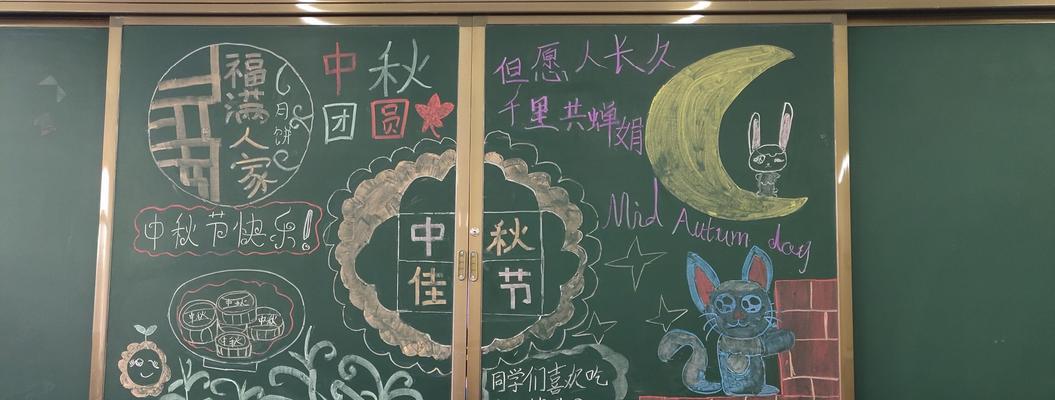 福满人家
月饼
中秋
团圆
中秋节快乐!
中秋
中秋
中秋
中秋
中秋
佳节
但愿人长久
千里共蝉娟
Mid Autum day
同学们喜欢吃